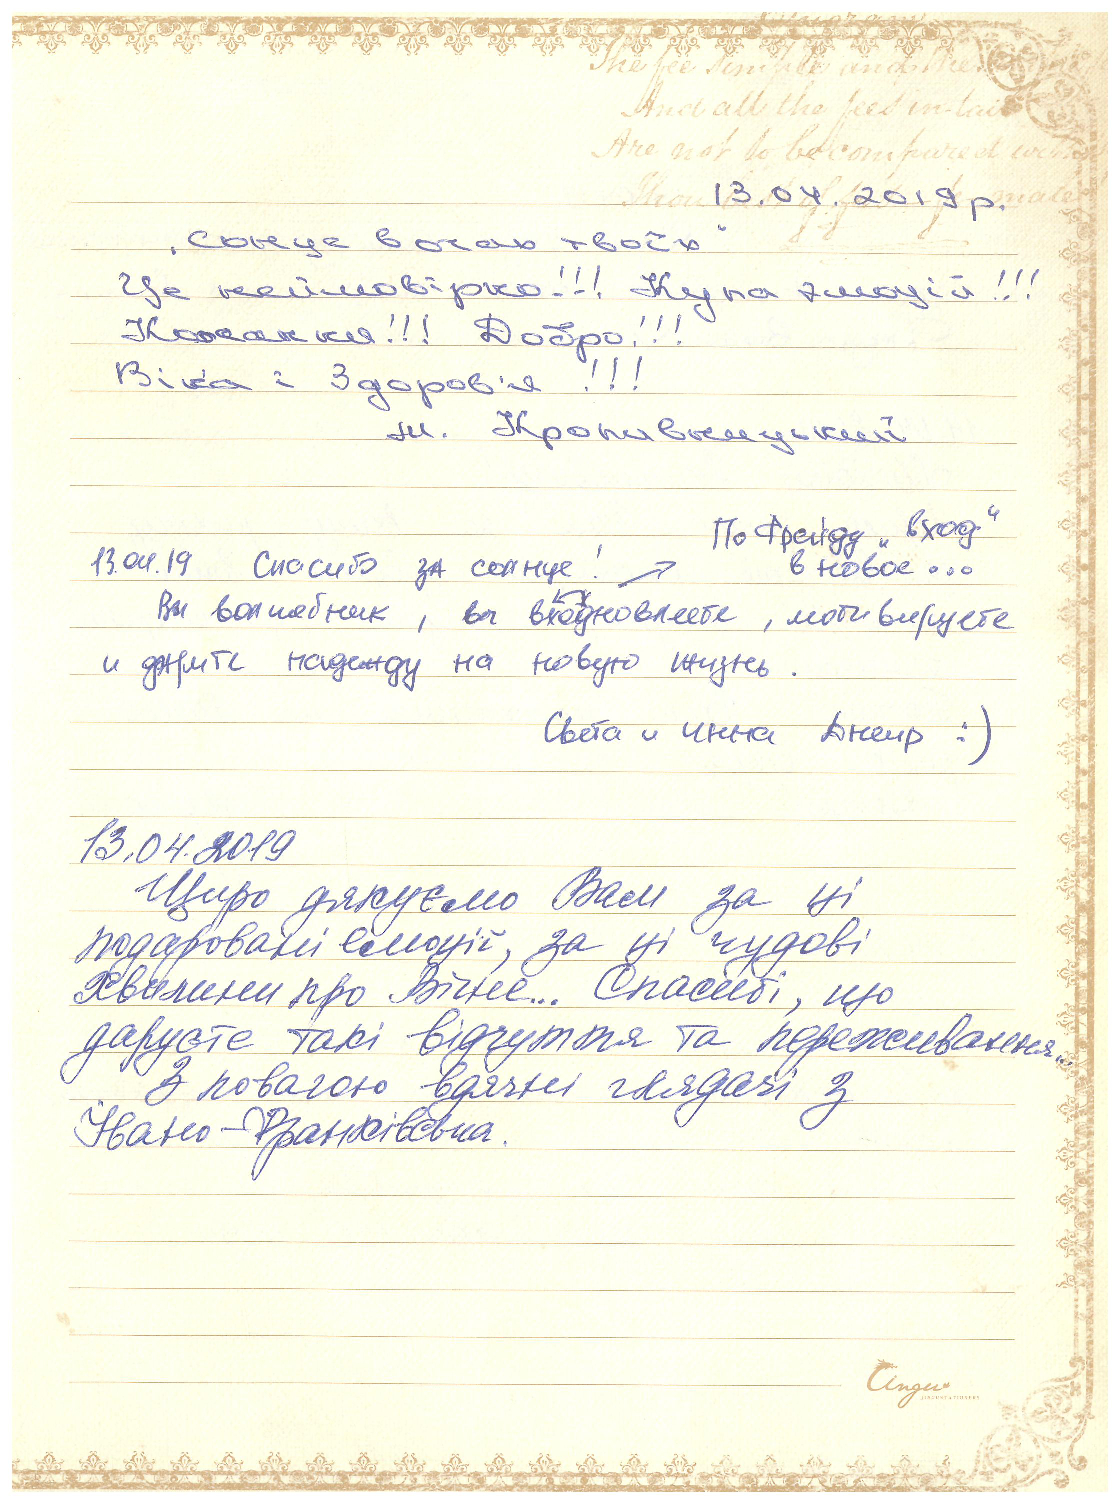 The fee simple and the
And all the fees in tail
Are not to be compared with
13.04.2019 р.
„Сонце в очах твоїх"
Це неймовірно!!! Купа эмоцій!!!
Кохання!!! Добро!!!
Віка і Здоров'я !!!
м. Кропивницький
По Фрейду „вход"
13.04.19 Спасибо за солнце! в новое...
Вы волшебник, вы вдохновляете, мотивируете
и дарите надежду на новую жизнь.
Света и Инна Днепр :)
13.04.2019
Щиро дякуємо Вам за ці
подаровані емоції, за ці чудові
хвилини про Вічне... Спасибі, що
даруєте такі відчуття та переживання...
З повагою вдячні глядачі з
Івано-Франківська.